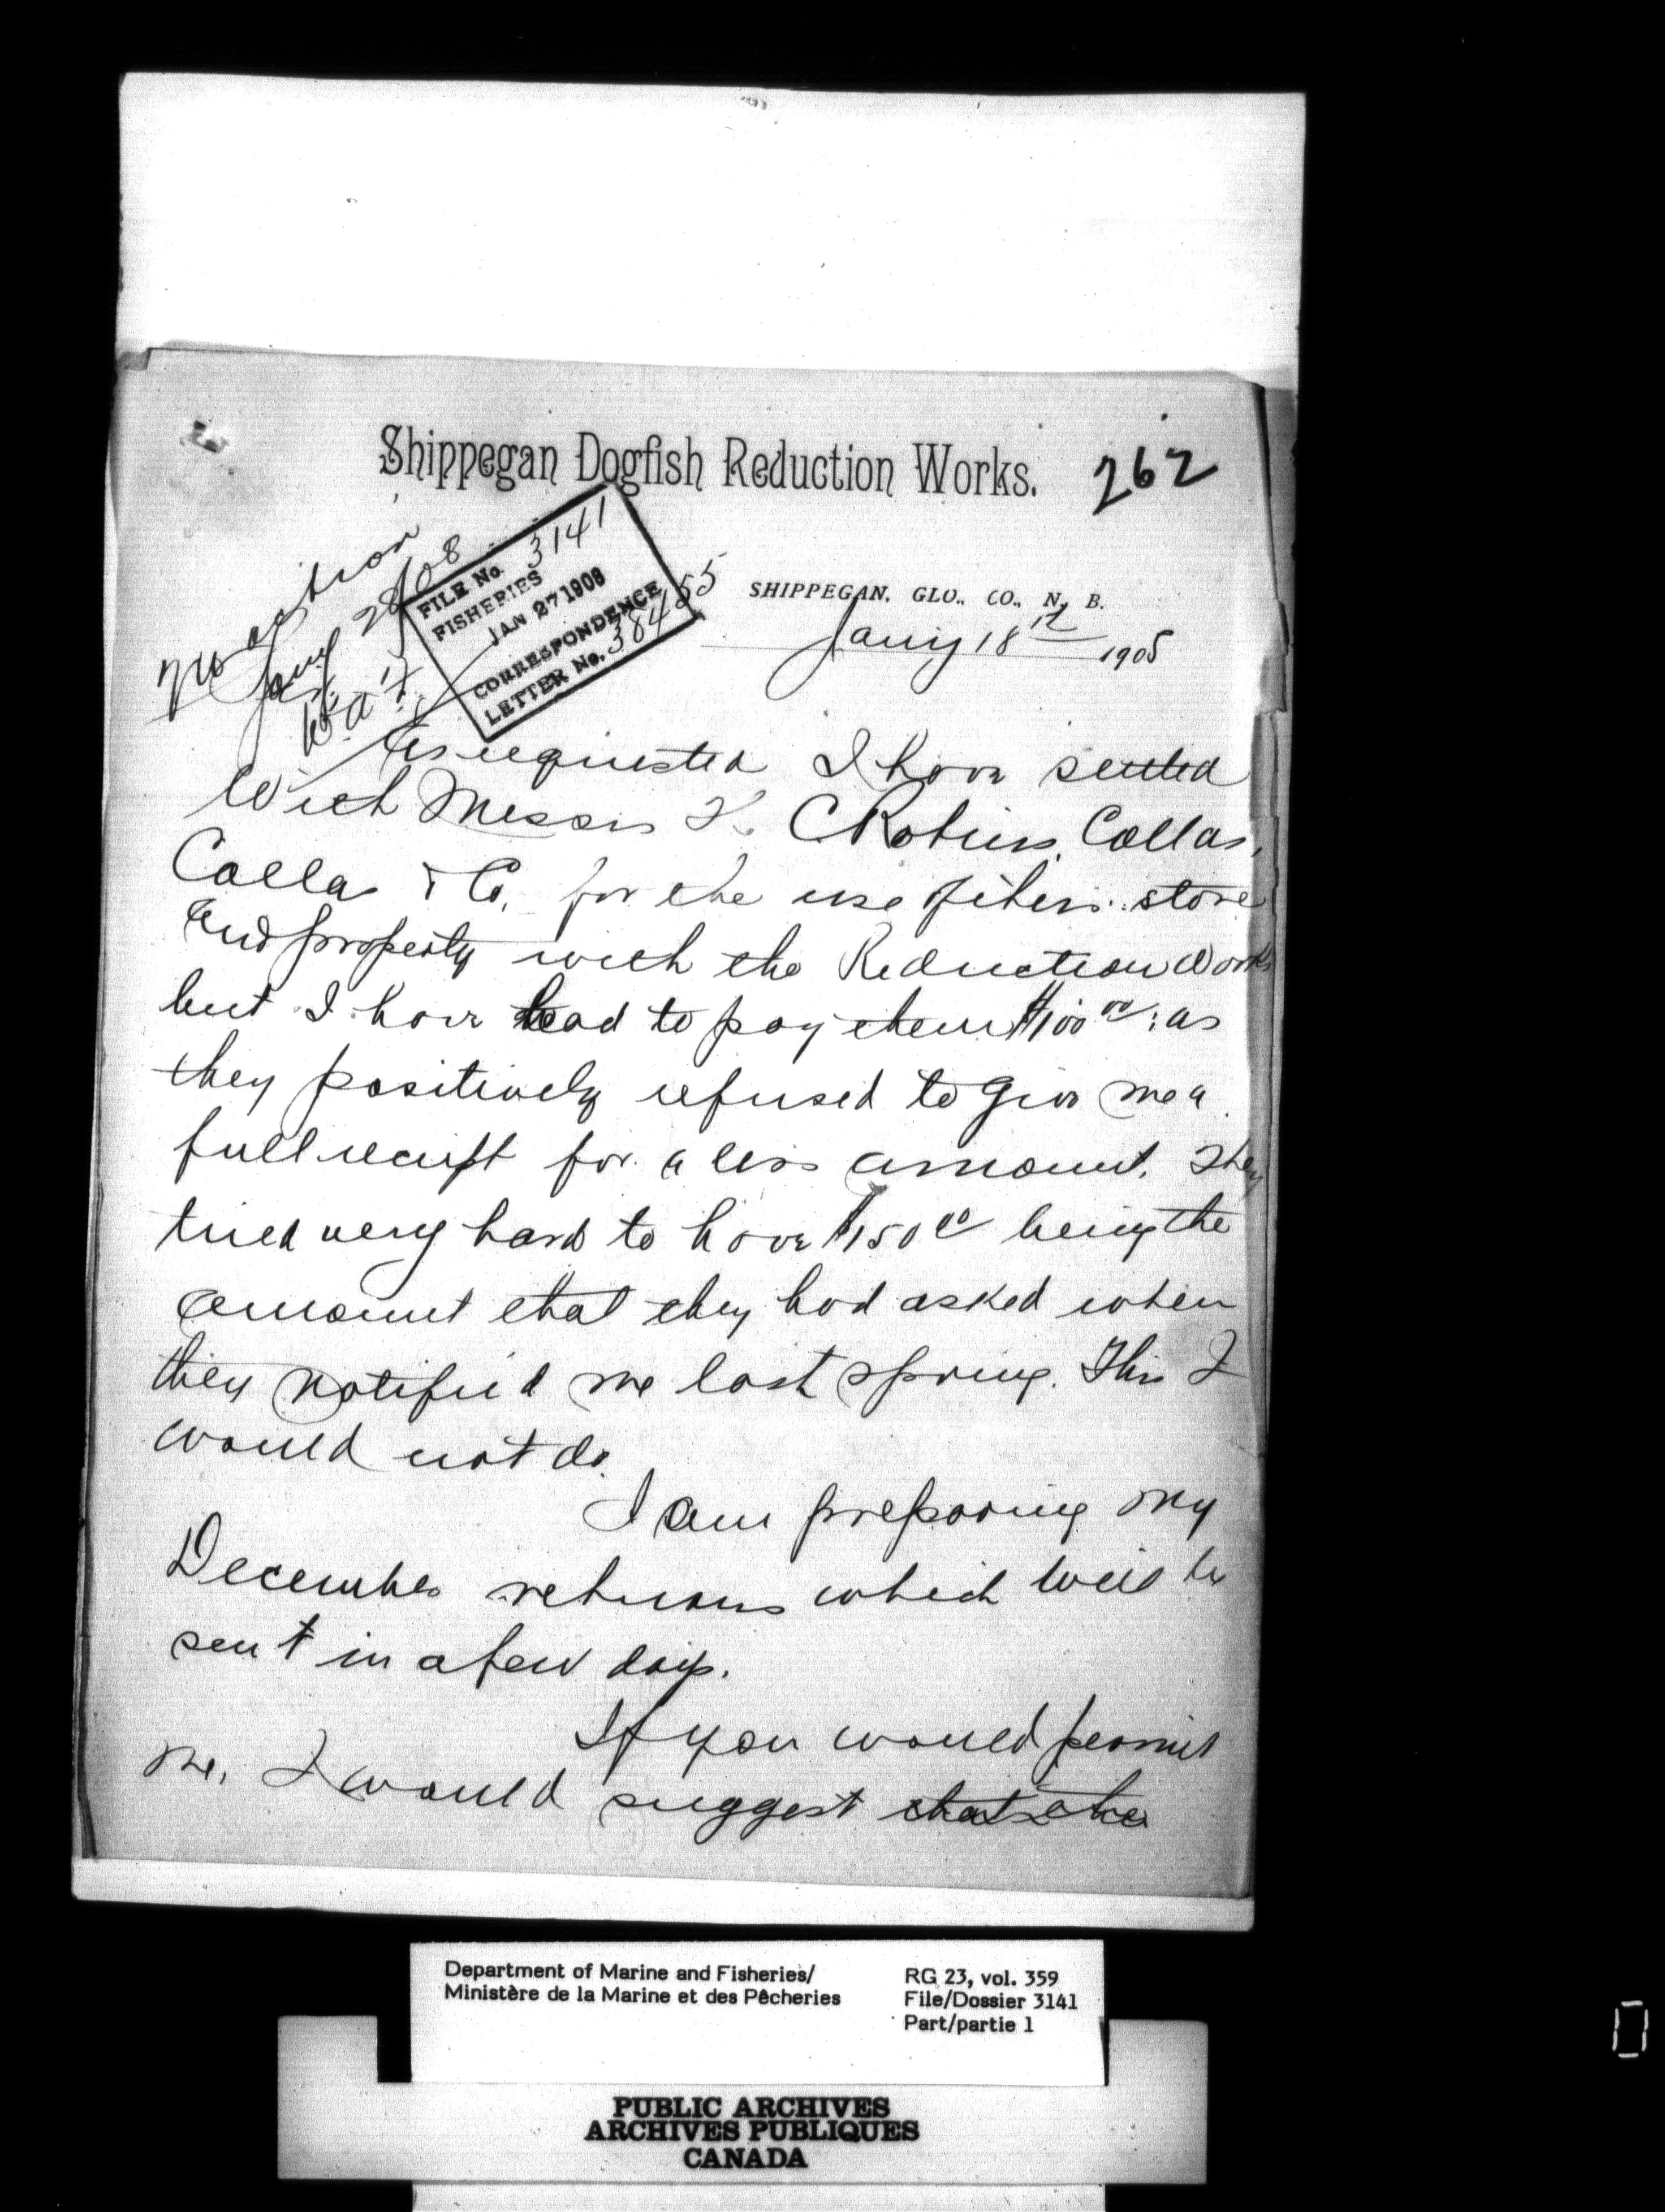 Shippegan Dogfish Reduction Works.
262
No action
Jany 28/08
FILE No. 3141
FISHERIES
JAN 27 1908
CORRESPONDENCE
LETTER No. 38455
SHIPPEGAN. GLO.. CO., N. B.
Jany 18th 1908
As requested I have settled
With Messrs C Robin, Collas,
Collas & Co, for the use of their store
and property with the Reduction Works
but I have had to pay them $100 00/ as
they positively refused to give me a
full receipt for a less amount. They
tried very hard to have $150 00/ being the
amount that they had asked when
they notified me last spring. This I
would not do.
I am preparing my
December returns which will be
sent in a few days.
If you would permit
me, I would suggest that the
Department of Marine and Fisheries/
Ministère de la Marine et des Pêcheries
RG 23, vol. 359
File/Dossier 3141
Part/partie 1
PUBLIC ARCHIVES
ARCHIVES PUBLIQUES
CANADA